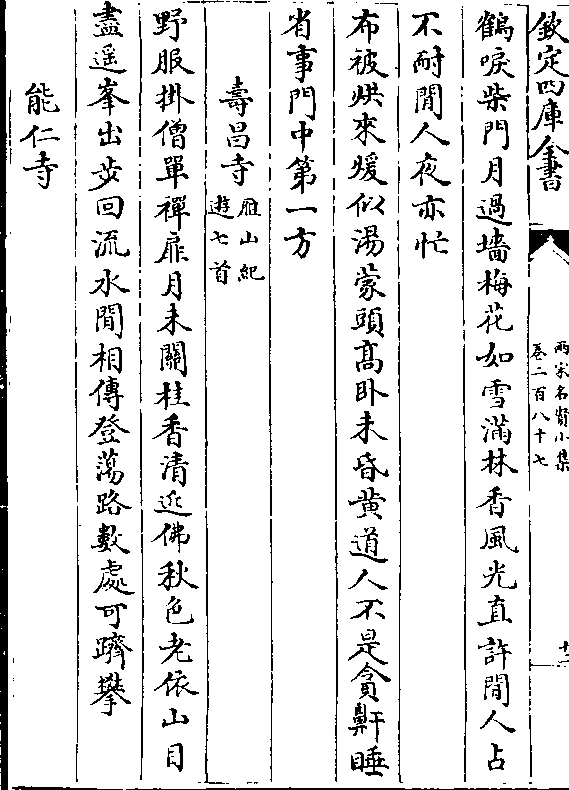 欽定四庫全書
兩宋名賢小集
卷二百八十七
十二
鶴唳柴門月過墻梅花如雪滿林香風光直許閒人占
不耐閒人夜亦忙
布被烘來煖似湯蒙頭高卧未昏黄道人不是貪鼾睡
省事門中第一方
壽昌寺 雁山紀
遊七首
野服掛僧單禪扉月未關桂香清近佛秋色老依山目
盡遥峯出步回流水閒相傳登蕩路數處可躋攀
能仁寺